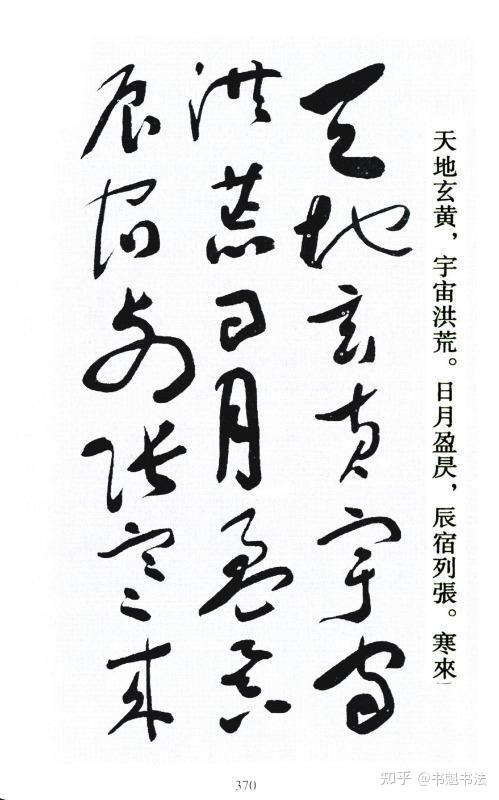 天地玄黄，宇宙洪荒。日月盈昃，辰宿列張。寒來
天地玄黄宇宙
洪荒日月盈昃
辰宿列張寒来
370
知乎 @书魁书法